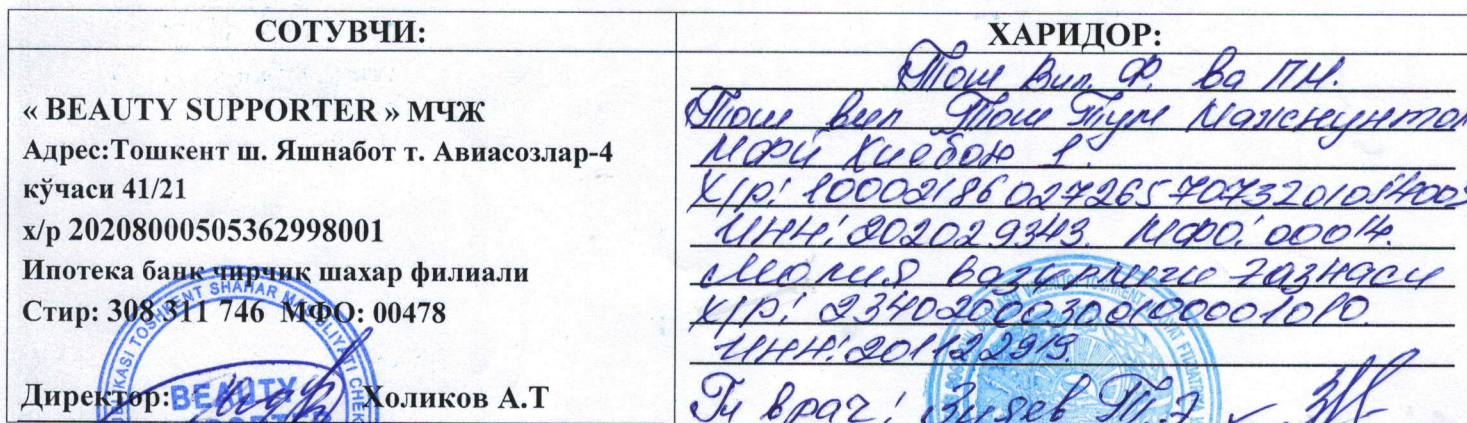 СОТУВЧИ:
« BEAUTY SUPPORTER » МЧЖ
Адрес:Тошкент ш. Яшнабот т. Авиасозлар-4
кўчаси 41/21
х/р 20208000505362998001
Ипотека банк чирчиқ шахар филиали
Стир: 308 311 746 МФО: 00478
Директор: Холиков А.Т
BEAUTY
ХАРИДОР:
Тош Вил. Ф. ва ПМ.
Тош вил Тош Тум Мажнунтол
Мфй Хиёбон 1.
Х/р: 
ИНН: 202029343. МФО: 00014.
Молия вазирлиги Ғазнаси
Х/р: 23402000300100001010.
ИНН: 201122919.
Гл врач: Зияев Т.Э